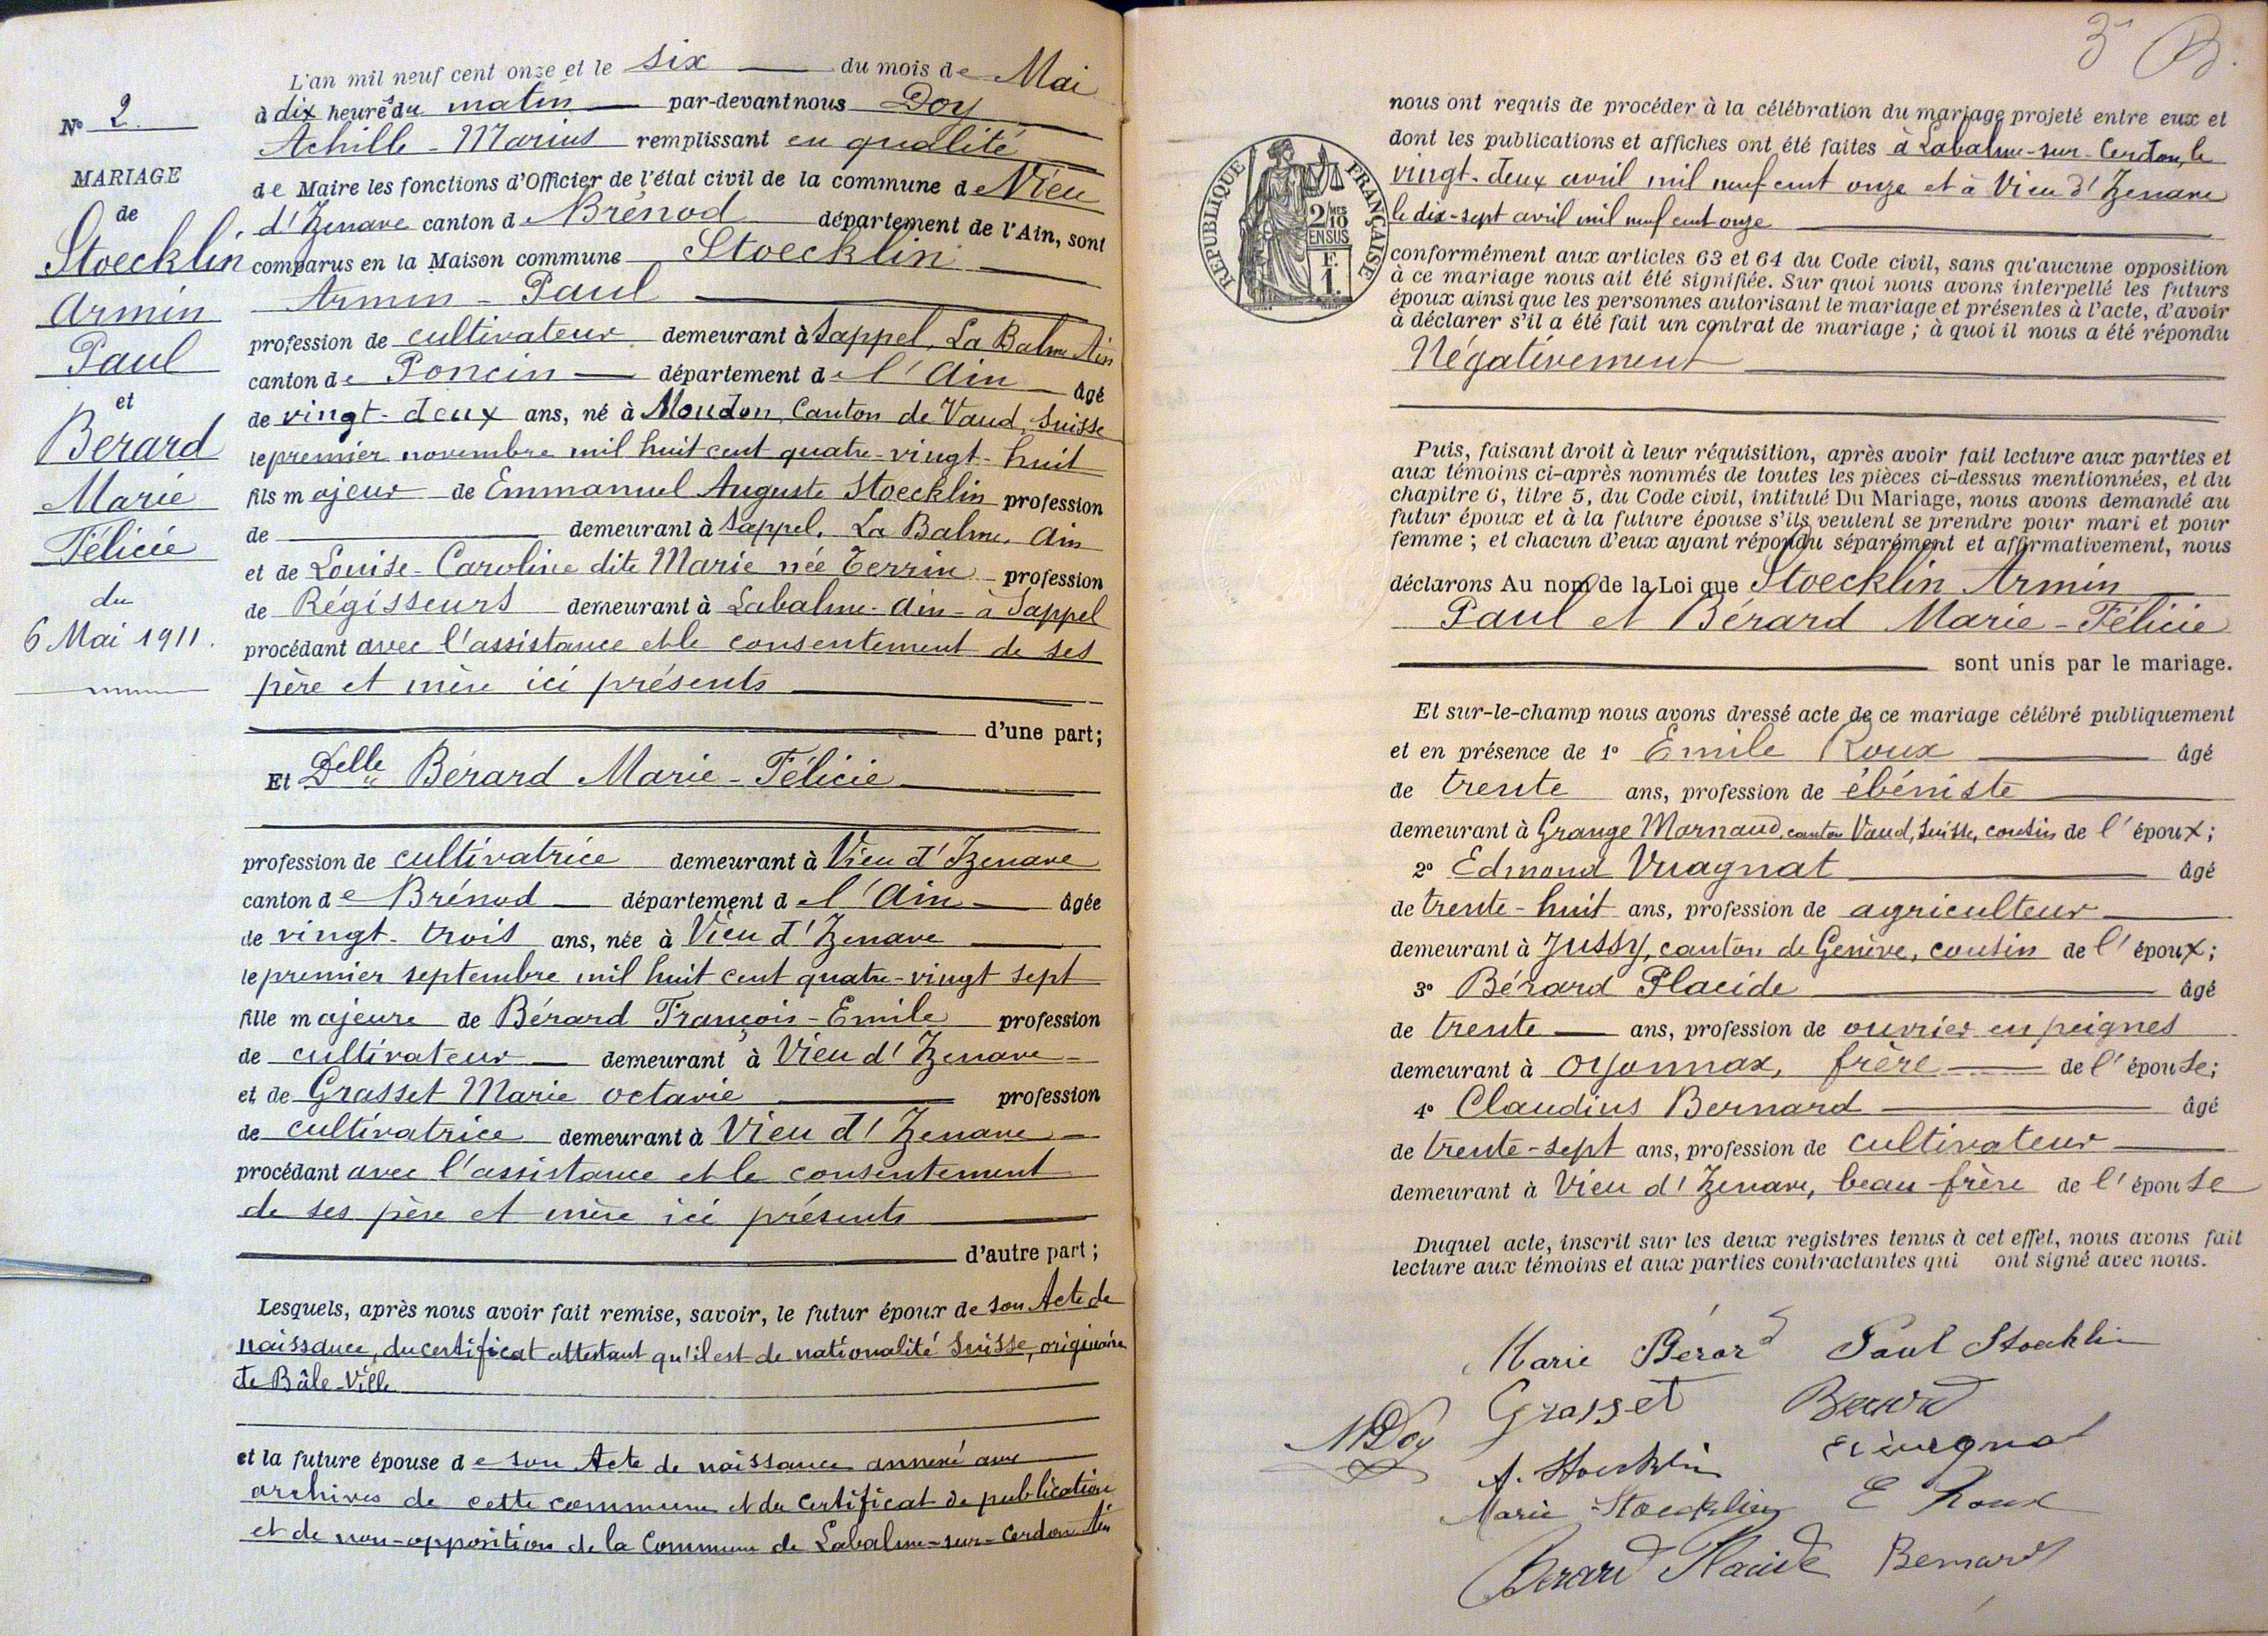 N° 2
MARIAGE
de
Stoecklin
Armin
Paul
et
Berard
Marie
Félicie
du
6 Mai 1911.
L'an mil neuf cent onze et le six du mois de Mai
à dix heures du matin par-devant nous Doy
Achille-Marius remplissant en qualité
de Maire les fonctions d'Officier de l'état civil de la commune de Vieu
d'Izenave canton de Brénod département de l'Ain, sont
comparus en la Maison commune Stoecklin
Armin-Paul
profession de cultivateur demeurant à Sappel, La Balme Ain
canton de Poncin département de l'Ain âgé
de vingt-deux ans, né à Moudon, Canton de Vaud, Suisse
le premier novembre mil huit cent quatre-vingt-huit
fils majeur de Emmanuel Auguste Stoecklin profession
de demeurant à Sappel. La Balme. Ain
et de Louise-Caroline dite Marie née Terrin profession
de Régisseurs demeurant à Labalme-Ain-à Sappel
procédant avec l'assistance et le consentement de ses
père et mère ici présents
d'une part;
Et Delle Bérard Marie-Félicie
profession de cultivatrice demeurant à Vieu d'Izenave
canton de Brénod département de l'Ain âgée
de vingt-trois ans, née à Vieu d'Izenave
le premier septembre mil huit cent quatre-vingt sept
fille majeure de Bérard François-Emile profession
de cultivateur demeurant à Vieu d'Izenave
et de Grasset Marie octavie profession
de cultivatrice demeurant à Vieu d'Izenave
procédant avec l'assistance et le consentement
de ses père et mère ici présents
d'autre part;
Lesquels, après nous avoir fait remise, savoir, le futur époux de son Acte de
naissance, du certificat attestant qu'il est de nationalité Suisse, originaire
de Bâle-Ville
et la future épouse de son Acte de naissance annexé aux
archives de cette commune et du certificat de publication
et de non-opposition de la Commune de Labalme-sur-Cerdon Ain
3 B.
RÉPUBLIQUE FRANÇAISE
2/10 MES
EN SUS
F.
1.
nous ont requis de procéder à la célébration du mariage projeté entre eux et
dont les publications et affiches ont été faites à Labalme-sur-Cerdon, le
vingt-deux avril mil neuf cent onze et à Vieu d'Izenave
le dix-sept avril mil neuf cent onze
conformément aux articles 63 et 64 du Code civil, sans qu'aucune opposition
à ce mariage nous ait été signifiée. Sur quoi nous avons interpellé les futurs
époux ainsi que les personnes autorisant le mariage et présentes à l'acte, d'avoir
à déclarer s'il a été fait un contrat de mariage; à quoi il nous a été répondu
Négativement
Puis, faisant droit à leur réquisition, après avoir fait lecture aux parties et
aux témoins ci-après nommés de toutes les pièces ci-dessus mentionnées, et du
chapitre 6, titre 5, du Code civil, intitulé Du Mariage, nous avons demandé au
futur époux et à la future épouse s'ils veulent se prendre pour mari et pour
femme; et chacun d'eux ayant répondu séparément et affirmativement, nous
déclarons Au nom de la Loi que Stoecklin Armin
Paul et Bérard Marie-Félicie
sont unis par le mariage.
Et sur-le-champ nous avons dressé acte de ce mariage célébré publiquement
et en présence de 1° Emile Roux âgé
de trente ans, profession de ébéniste
demeurant à Grange Marnaud, canton Vaud, Suisse, cousin de l'époux;
2° Edmond Vuagnat âgé
de trente-huit ans, profession de agriculteur
demeurant à Jussy, canton de Genève, cousin de l'époux;
3° Bérard Placide âgé
de trente ans, profession de ouvrier en peignes
demeurant à Oyonnax, frère de l'épouse;
4° Claudius Bernard âgé
de trente-sept ans, profession de cultivateur
demeurant à Vieu d'Izenave, beau-frère de l'épouse
Duquel acte, inscrit sur les deux registres tenus à cet effet, nous avons fait
lecture aux témoins et aux parties contractantes qui ont signé avec nous.
Marie Bérard Paul Stoecklin
Grasset Berard
Doy
A. Stoecklin
Marie Stoecklin E Roux
Berard Placide Bernard